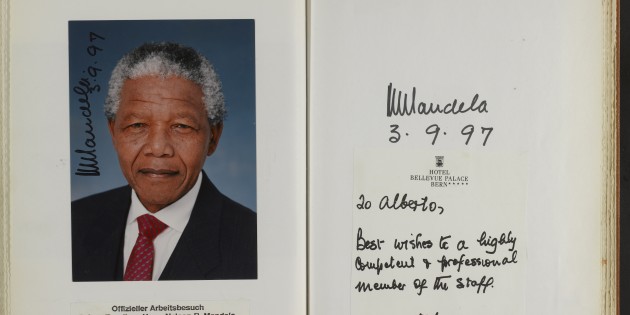 Mandela
3.9.97
Offizieller Arbeitsbesuch
Nelson R. Mandela
Mandela
3.9.97
HOTEL
BELLEVUE PALACE
BERN*****
To Alberto,
Best wishes to a highly
competent & professional
member of the staff.